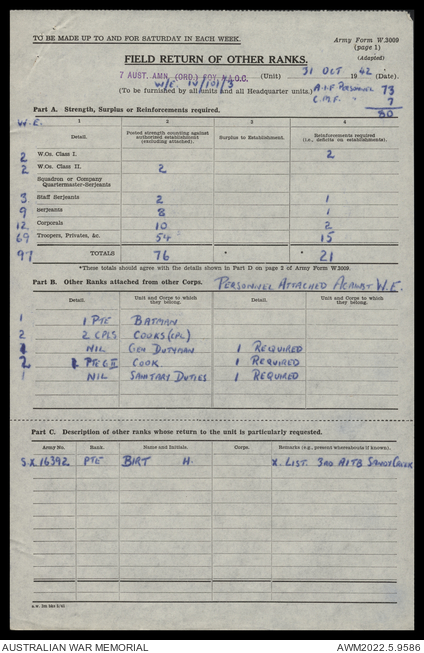 TO BE MADE UP TO AND FOR SATURDAY IN EACH WEEK.
Army Form W.3009
(page 1)
(Adapted)
FIELD RETURN OF OTHER RANKS.
7 AUST. AMN. (ORD.) COY. A.A.O.C. (Unit) 31 OCT 1942 (Date).
W/E IV/101/3
(To be furnished by all units and all Headquarter units.)
A.I.F PERSONNEL 73
C.M.F. " 7
80
Part A. Strength, Surplus or Reinforcements required.
W.E. 1 2 3 4
Detail. Posted strength counting against authorized establishment (excluding attached). Surplus to Establishment. Reinforcements required (i.e., deficits on establishments).
2 W.Os. Class I. 2
2 W.Os. Class II. 2
Squadron or Company Quartermaster-Serjeants
3 Staff Serjeants 2 1
9 Serjeants 8 1
12 Corporals 10 2
69 Troopers, Privates, &c. 54 15
97 TOTALS 76 * * 21
*These totals should agree with the details shown in Part D on page 2 of Army Form W.3009.
Part B. Other Ranks attached from other Corps. PERSONNEL ATTACHED AGAINST W.E.
Detail. Unit and Corps to which they belong. Detail. Unit and Corps to which they belong.
1 1 PTE BATMAN
2 2 CPLS COOKS (CPL)
1 NIL GEN DUTYMAN 1 REQUIRED
2 1 PTE G II COOK 1 REQUIRED
1 NIL SANITARY DUTIES 1 REQUIRED
Part C. Description of other ranks whose return to the unit is particularly requested.
Army No. Rank. Name and Initials. Corps. Remarks (e.g., present whereabouts if known).
SX16392 PTE BIRT H. X. LIST. 3RD A.I.T.B SANDY CREEK
AUSTRALIAN WAR MEMORIAL
AWM2022.5.9586